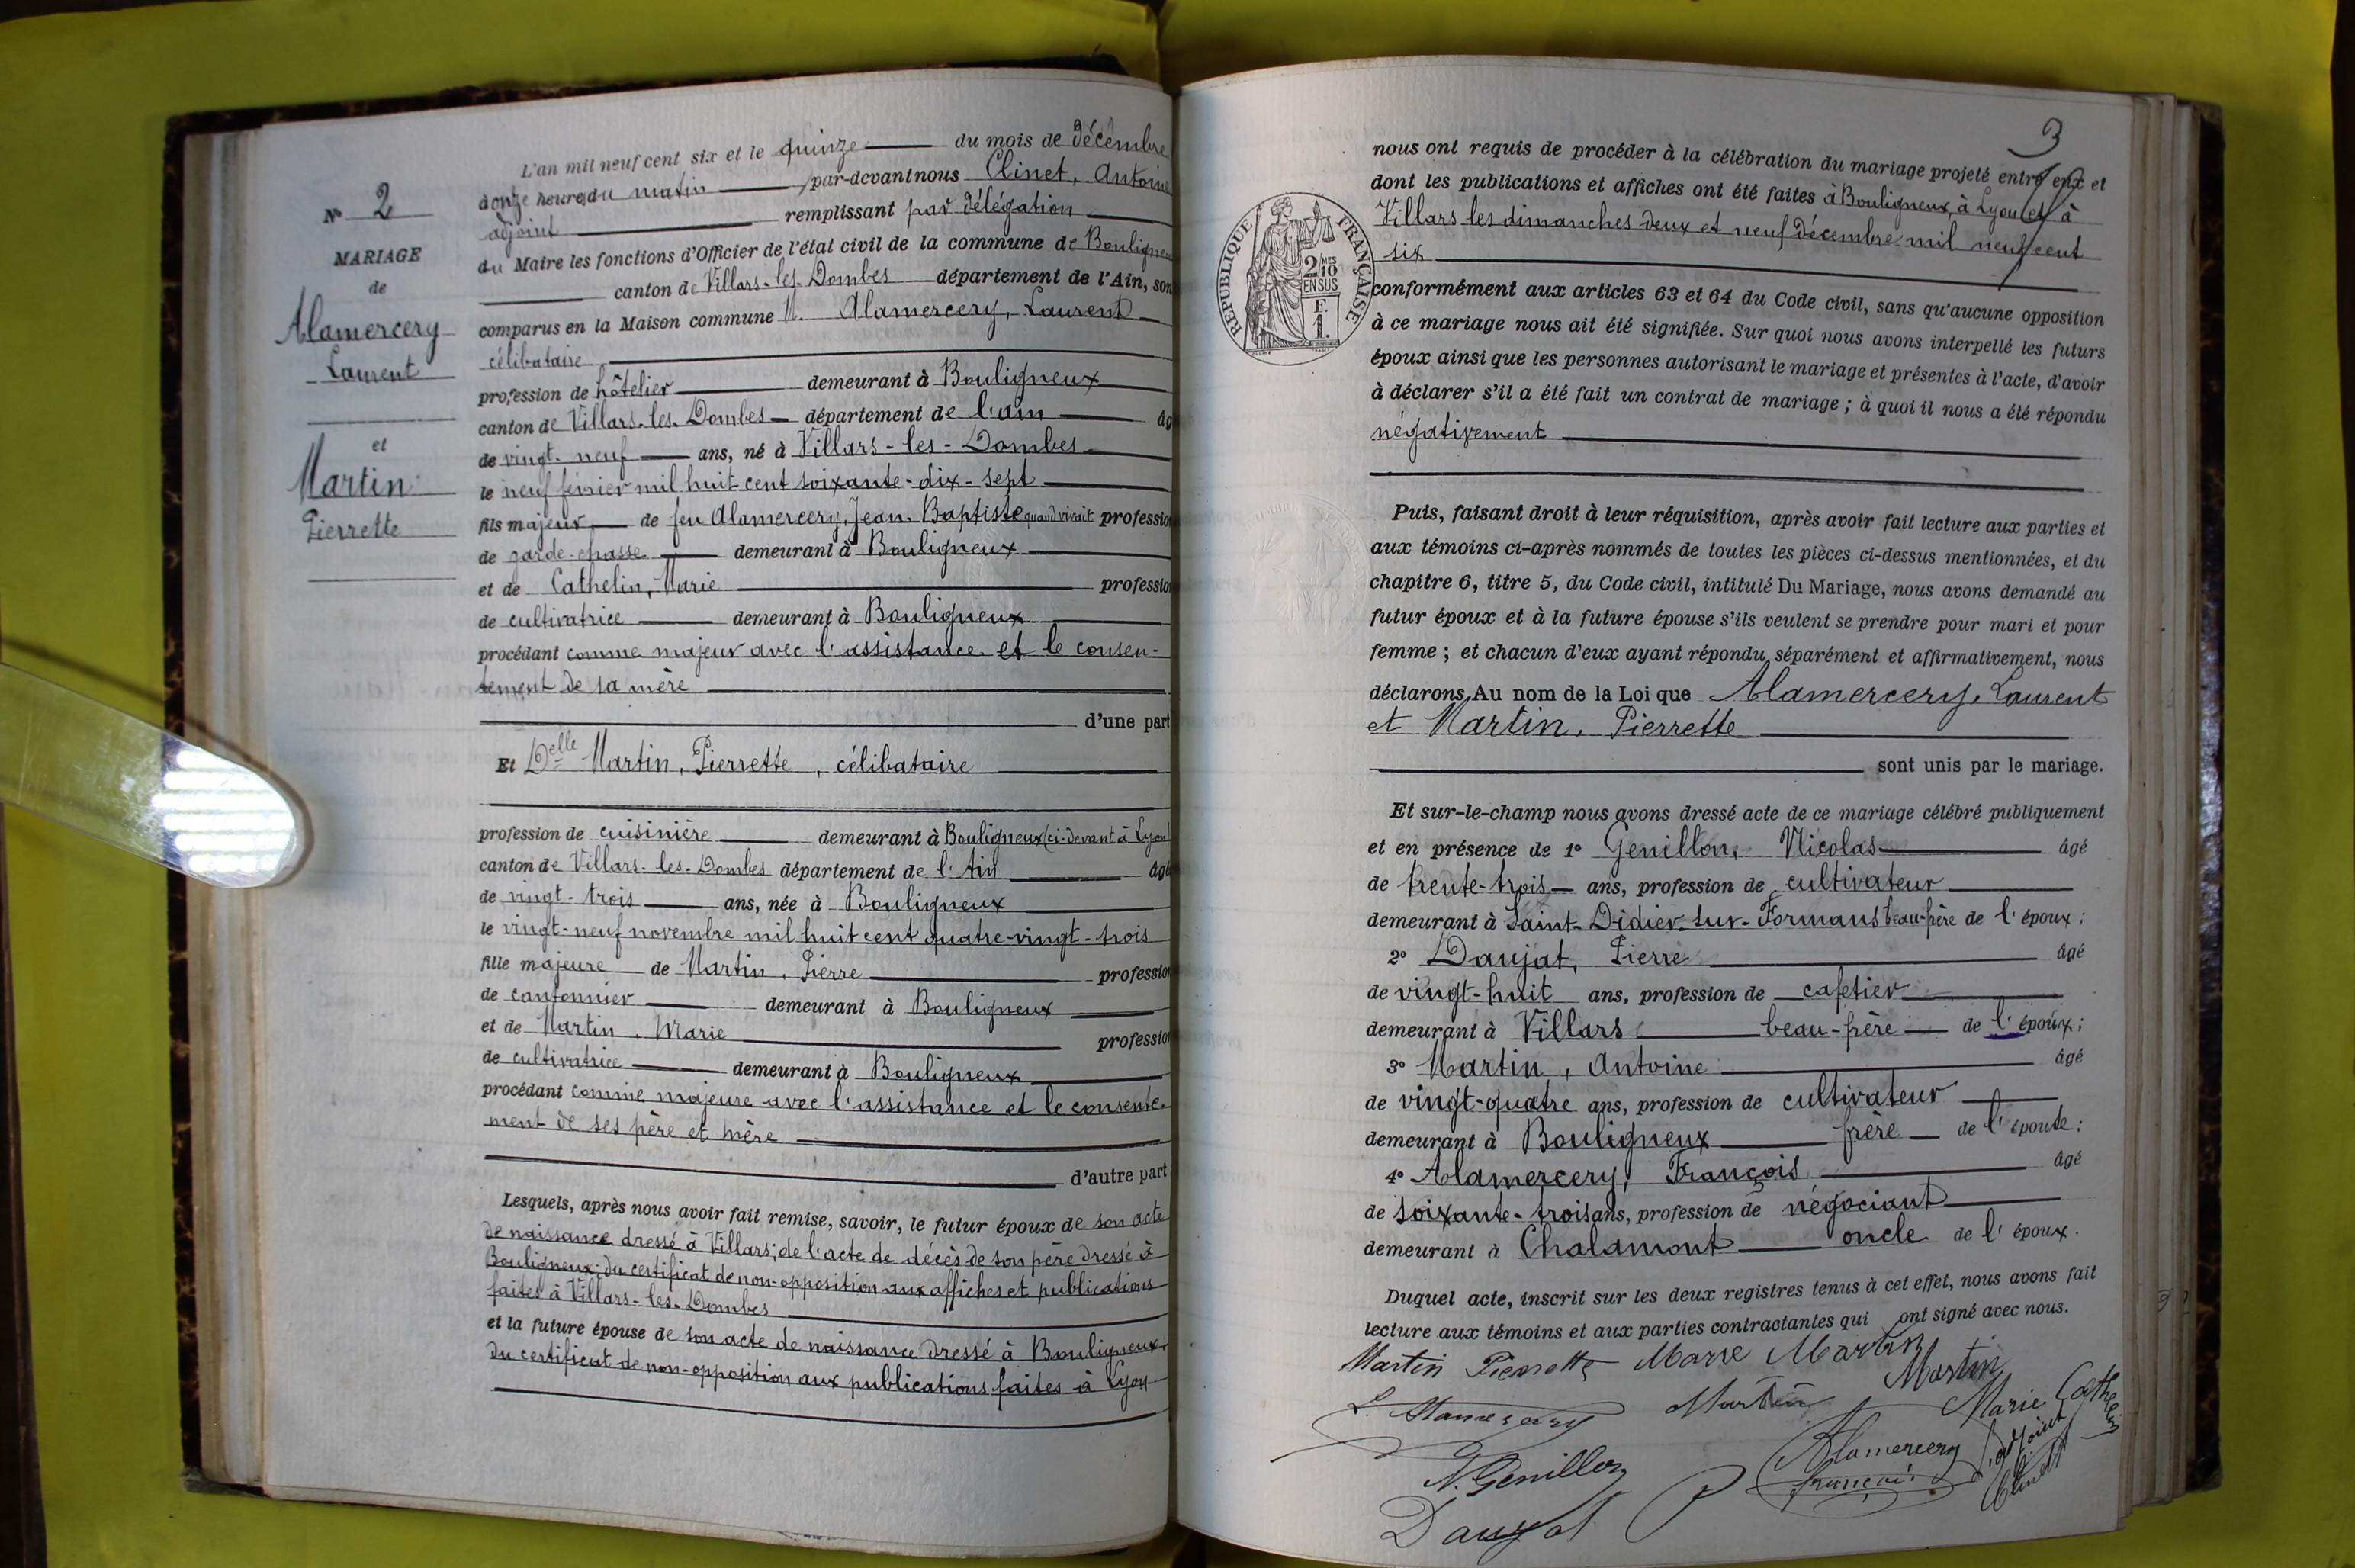 L'an mil neuf cent six et le quinze du mois de décembre
à onze heures du matin par-devant nous Clinet, Antoine
adjoint remplissant par délégation
du Maire les fonctions d'Officier de l'état civil de la commune de Bouligneux
canton de Villars-les-Dombes département de l'Ain, son
comparus en la Maison commune M. Alamercery, Laurent
célibataire
profession de hôtelier demeurant à Bouligneux
canton de Villars-les-Dombes département de l'ain âg
de vingt-neuf ans, né à Villars-les-Dombes
le neuf février mil huit cent soixante-dix-sept
fils majeur de feu Alamercery, Jean-Baptiste quand vivait profession
de garde-chasse demeurant à Bouligneux
et de Cathelin, Marie profession
de cultivatrice demeurant à Bouligneux
procédant comme majeur avec l'assistance et le consen-
tement de sa mère
d'une part
Et Delle Martin, Pierrette, célibataire
profession de cuisinière demeurant à Bouligneux (ci-devant à Lyon)
canton de Villars-les-Dombes département de l'Ain âgé
de vingt-trois ans, née à Bouligneux
le vingt-neuf novembre mil huit cent quatre-vingt-trois
fille majeure de Martin, Pierre profession
de cantonnier demeurant à Bouligneux
et de Martin, Marie profession
de cultivatrice demeurant à Bouligneux
procédant comme majeure avec l'assistance et le consente-
ment de ses père et mère
d'autre part
Lesquels, après nous avoir fait remise, savoir, le futur époux de son acte
de naissance dressé à Villars; de l'acte de décès de son père dressé à
Bouligneux; du certificat de non-opposition aux affiches et publications
faites à Villars-les-Dombes
et la future épouse de son acte de naissance dressé à Bouligneux.
du certificat de non-opposition aux publications faites à Lyon
N° 2
MARIAGE
de
Alamercery
Laurent
et
Martin
Pierrette
3
nous ont requis de procéder à la célébration du mariage projeté entre eux et
dont les publications et affiches ont été faites à Bouligneux, à Lyon et à
Villars les dimanches deux et neuf décembre mil neuf cent
six
RÉPUBLIQUE FRANÇAISE
2 MES
10
EN SUS
F.
1.
conformément aux articles 63 et 64 du Code civil, sans qu'aucune opposition
à ce mariage nous ait été signifiée. Sur quoi nous avons interpellé les futurs
époux ainsi que les personnes autorisant le mariage et présentes à l'acte, d'avoir
à déclarer s'il a été fait un contrat de mariage ; à quoi il nous a été répondu
négativement
Puis, faisant droit à leur réquisition, après avoir fait lecture aux parties et
aux témoins ci-après nommés de toutes les pièces ci-dessus mentionnées, et du
chapitre 6, titre 5, du Code civil, intitulé Du Mariage, nous avons demandé au
futur époux et à la future épouse s'ils veulent se prendre pour mari et pour
femme ; et chacun d'eux ayant répondu séparément et affirmativement, nous
déclarons, Au nom de la Loi que Alamercery, Laurent
et Martin, Pierrette
sont unis par le mariage.
Et sur-le-champ nous avons dressé acte de ce mariage célébré publiquement
et en présence de 1° Genillon, Nicolas âgé
de trente-trois ans, profession de cultivateur
demeurant à Saint-Didier-sur-Formans beau-frère de l'époux;
2° Daujat, Pierre âgé
de vingt-huit ans, profession de cafetier
demeurant à Villars beau-frère de l'époux;
3° Martin, Antoine âgé
de vingt-quatre ans, profession de cultivateur
demeurant à Bouligneux frère de l'épouse;
4° Alamercery, François âgé
de soixante-trois ans, profession de négociant
demeurant à Chalamont oncle de l'époux.
Duquel acte, inscrit sur les deux registres tenus à cet effet, nous avons fait
lecture aux témoins et aux parties contractantes qui ont signé avec nous.
Martin Pierrette Marie Martin
L. Alamercery Martin Martin
Marie Cathelin
N. Genillon Alamercery
françois
l'adjoint
Clinet
Daujat P